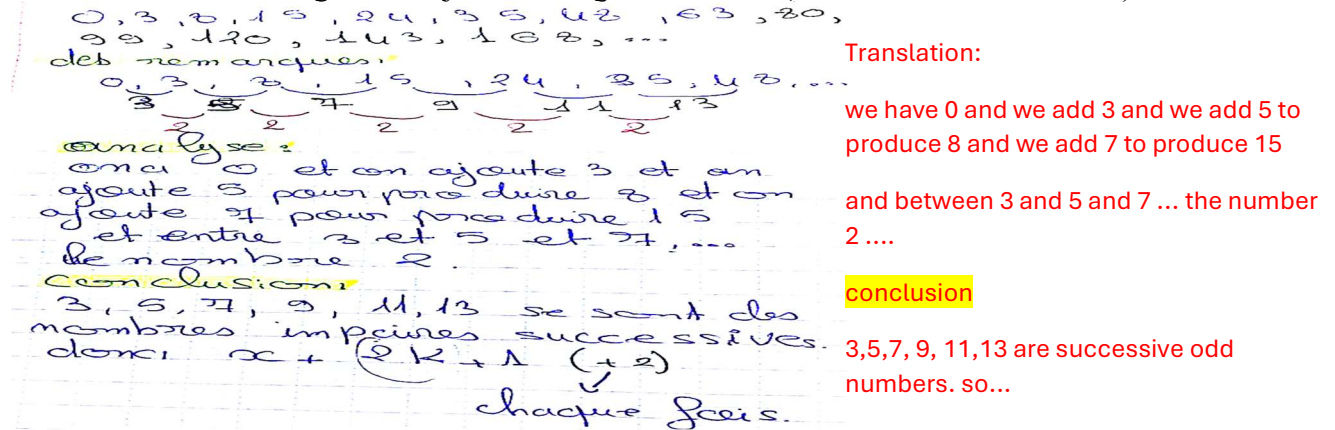 0, 3, 8, 15, 24, 35, 48, 63, 80,
99, 120, 143, 168, ...
des remarques:
0, 3, 8, 15, 24, 35, 48, ...
3 5 7 9 11 13
2 2 2 2 2
analyse:
ona 0 et on ajoute 3 et on
ajoute 5 pour produire 8 et on
ajoute 7 pour produire 15
et entre 3 et 5 et 7, ...
le nombre 2.
Conclusion:
3, 5, 7, 9, 11, 13 se sont des
nombres impaires successives.
donc x + (2k + 1 (+2)
chaque fois.
Translation:
we have 0 and we add 3 and we add 5 to
produce 8 and we add 7 to produce 15
and between 3 and 5 and 7 ... the number
2 ....
conclusion
3,5,7, 9, 11,13 are successive odd
numbers. so...